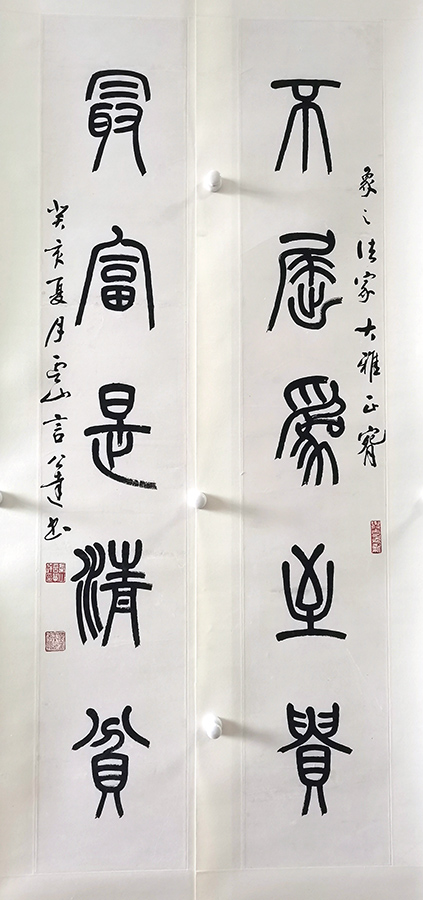 象之法家大雅正
不屈為至貴
最富是清貧
癸亥夏月虞山言公達書